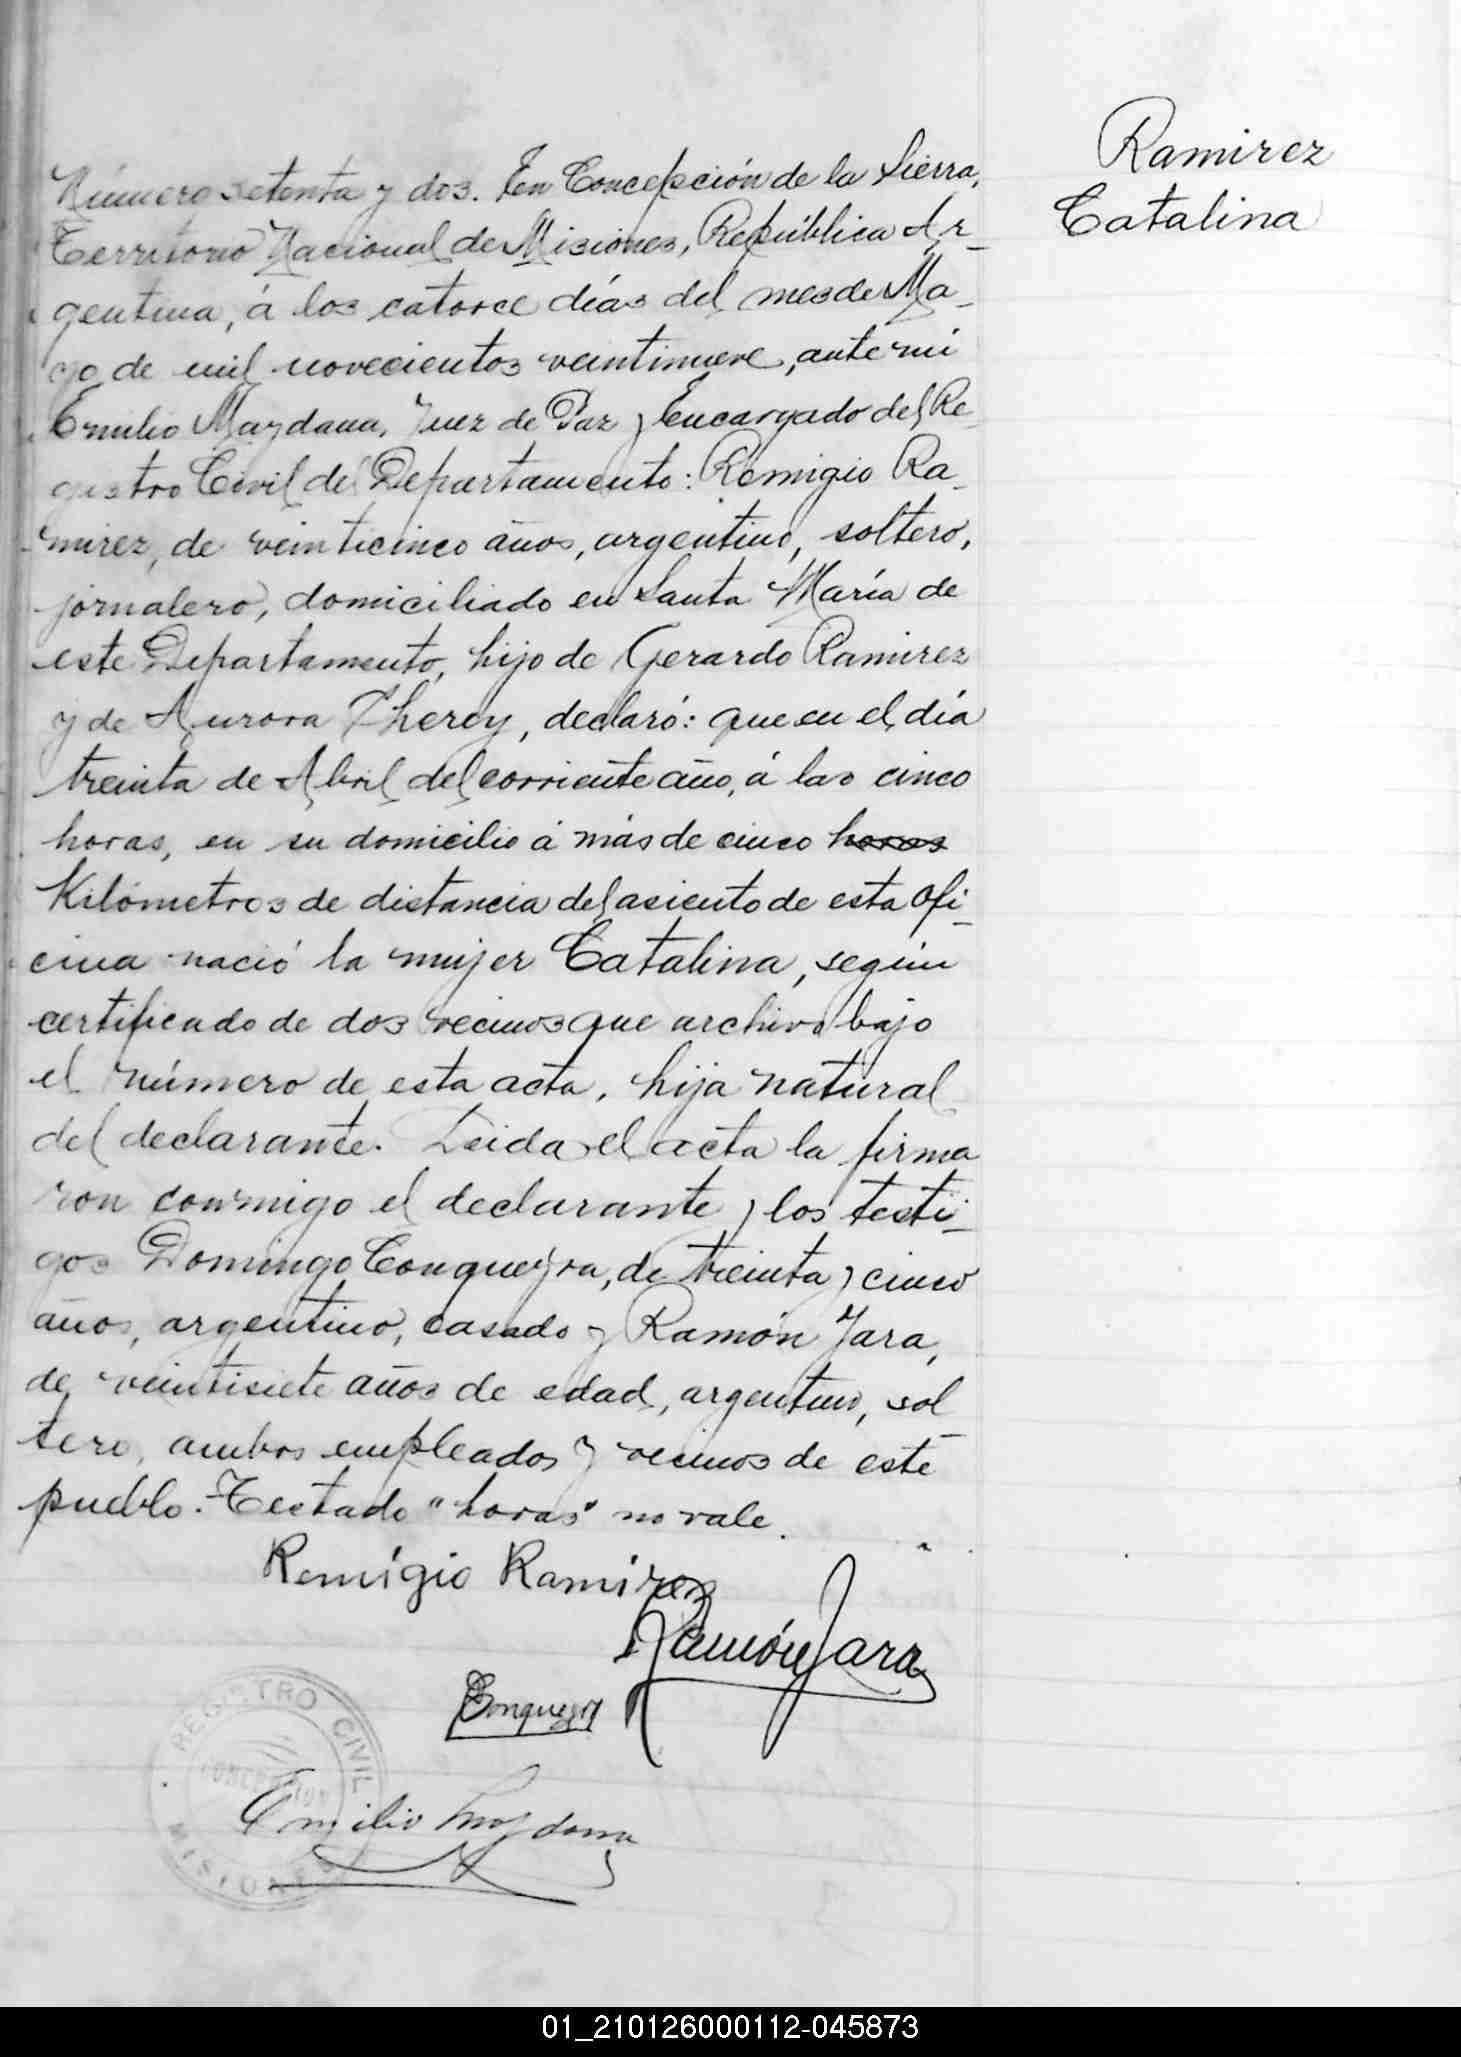 Ramirez
Catalina
Número setenta y dos. En Concepción de la Sierra,
Territorio Nacional de Misiones, República Ar-
gentina, á los catorce días del mes de Ma-
yo de mil novecientos veintinueve, ante mi
Emilio Maydana, Juez de Paz y Encargado del Re-
gistro Civil del Departamento: Remigio Ra-
mirez, de veinticinco años, argentino, soltero,
jornalero, domiciliado en Santa María de
este Departamento, hijo de Gerardo Ramirez
y de Aurora Cherey, declaró: que en el día
treinta de Abril del corriente año, á las cinco
horas, en su domicilio á más de cinco horas
Kilómetros de distancia del asiento de esta ofi-
cina nació la mujer Catalina, según
certificado de dos vecinos que archivo bajo
el número de esta acta, hija natural
del declarante. Leida el acta la firma
ron conmigo el declarante y los testi-
gos Domingo Conqueyra, de treinta y cinco
años, argentino, casado y Ramón Jara,
de veintisiete años de edad, argentino, sol
tero, ambos empleados y vecinos de este
pueblo. Testado "horas" no vale.
Remigio Ramirez
Ramón Jara
Emilio Maydana
REGISTRO CIVIL
CONCEPCION
MISIONES
01_210126000112-045873